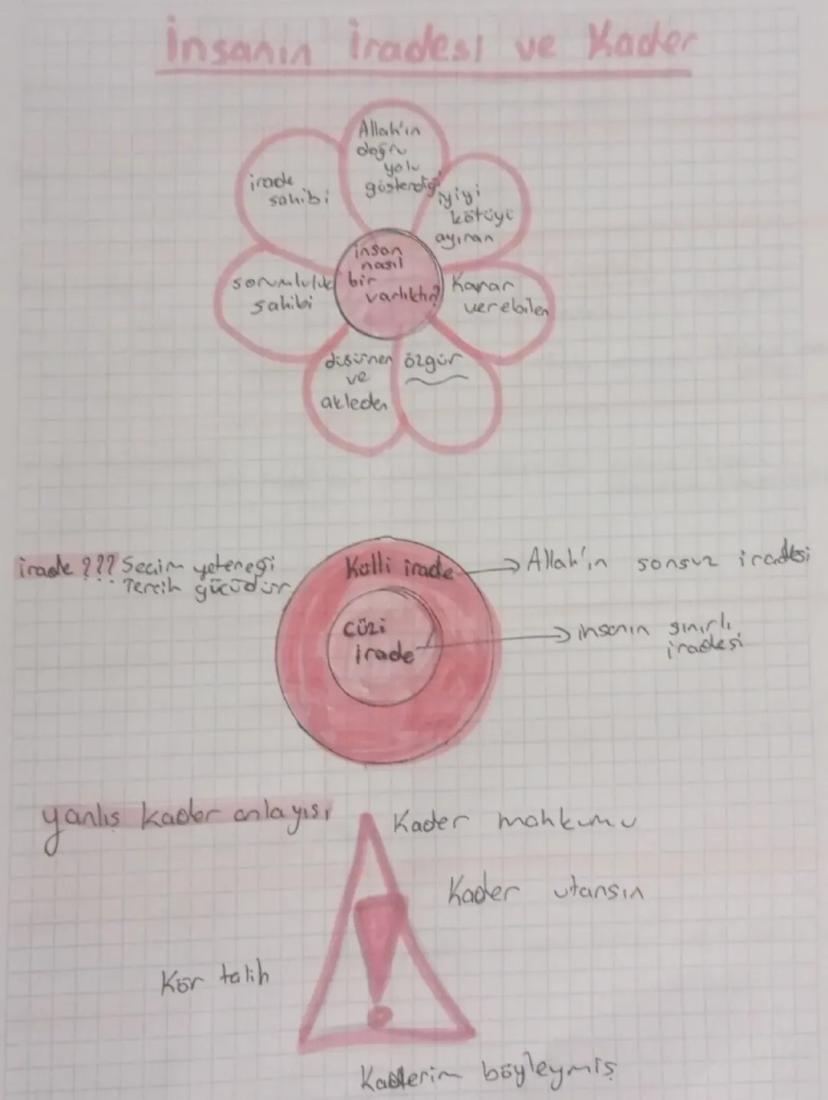 İnsanın İradesi ve Kader
Allah'ın
doğru
yolu
gösterdiği
iyiyi
kötüyü
ayıran
Karar
verebilen
özgür
düşünen
ve
akleden
sorumluluk
sahibi
irade
sahibi
insan
nasıl
bir
varlıktır?
irade ??? Seçim yeteneği
Tercih gücüdür
Külli irade → Allah'ın sonsuz iradesi
Cüzi
irade → insanın sınırlı
iradesi
yanlış kader anlayışı
Kader mahkumu
Kader utansın
Kör talih
Kaderim böyleymiş